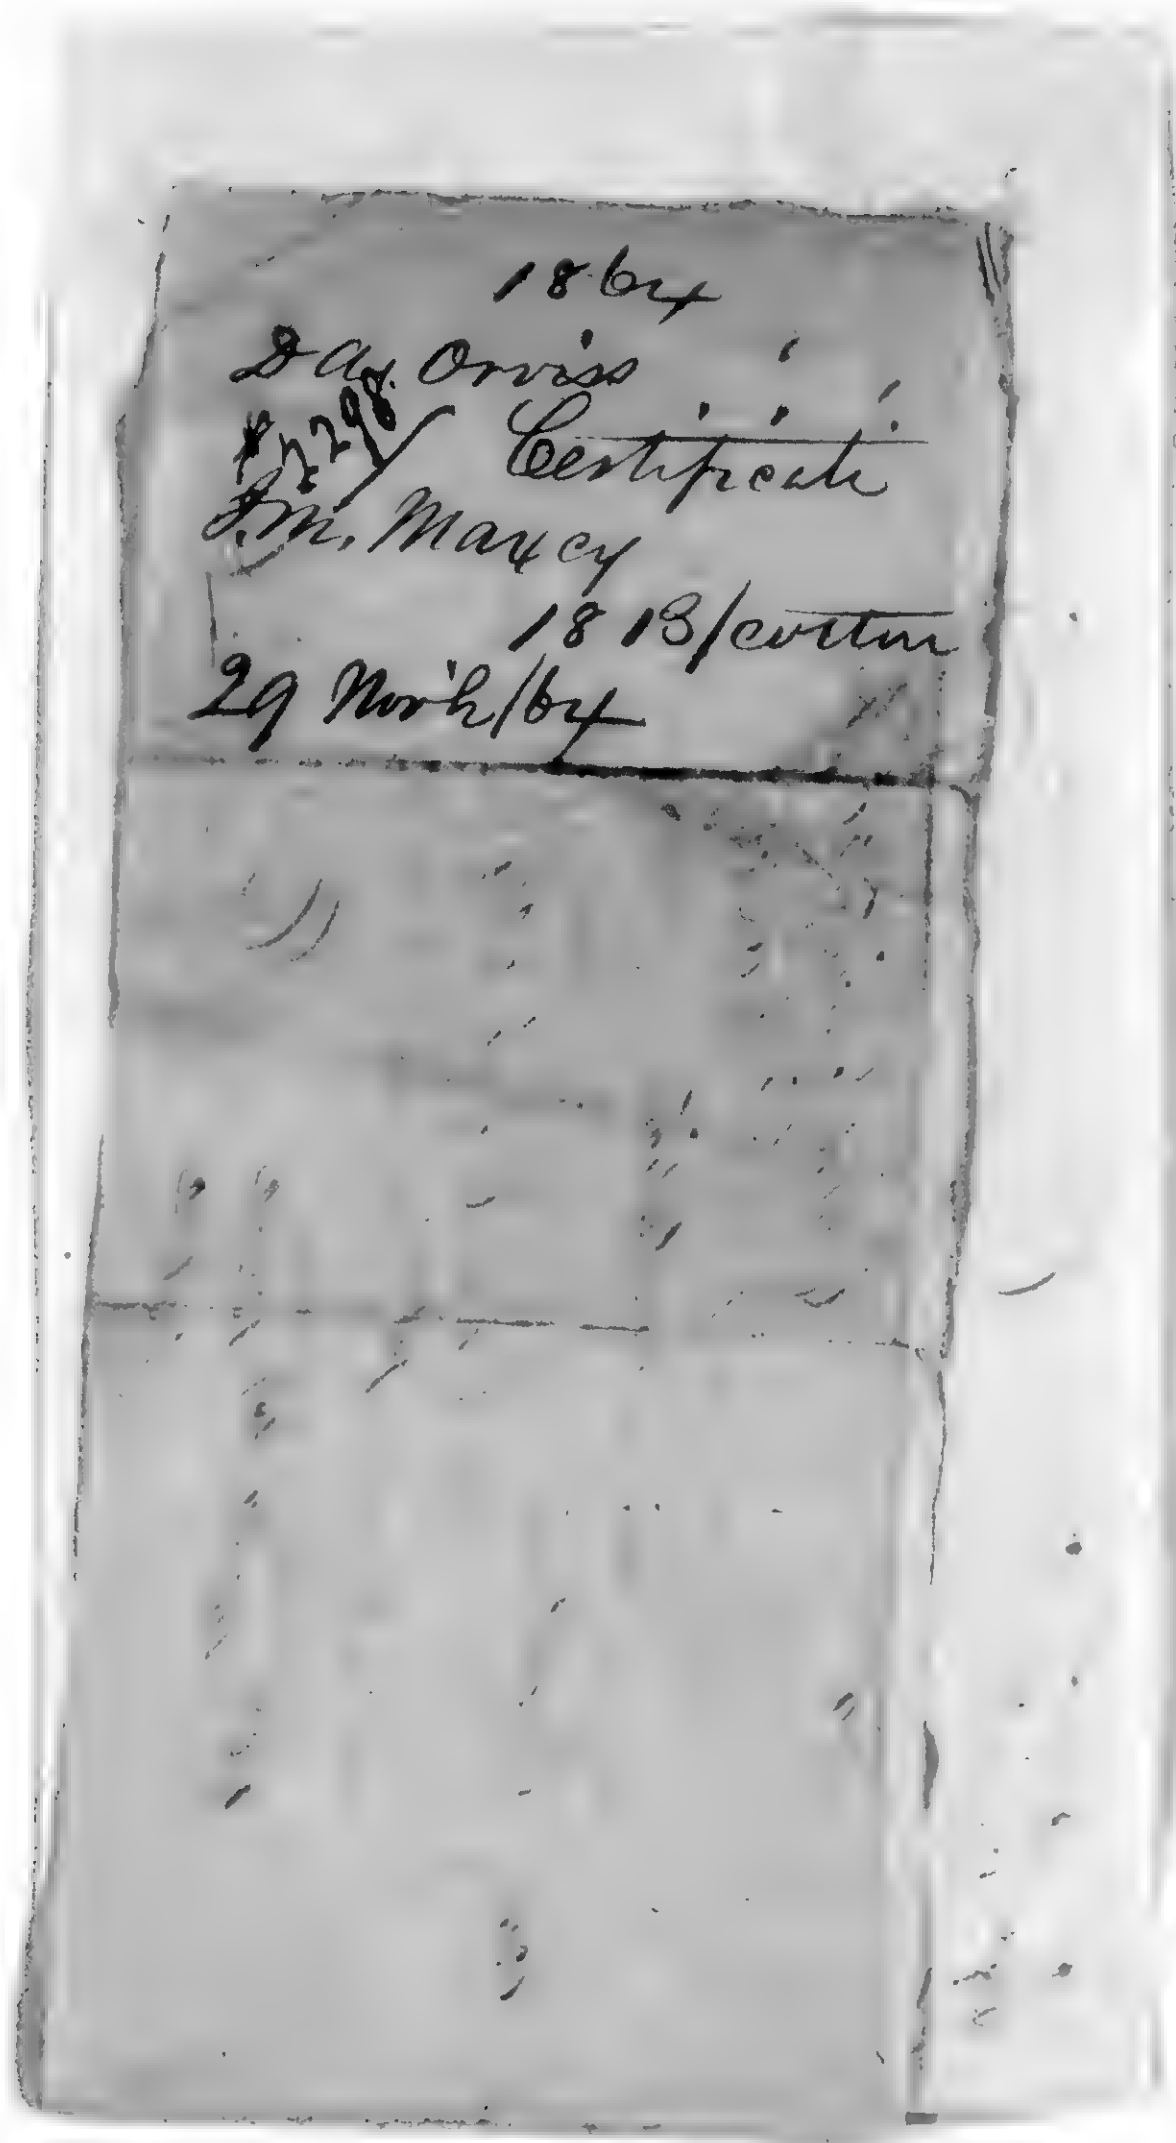 1864
D A Orviss
Certificate
J. M. Maxcy
18 B/cotton
29 Nov'b/64